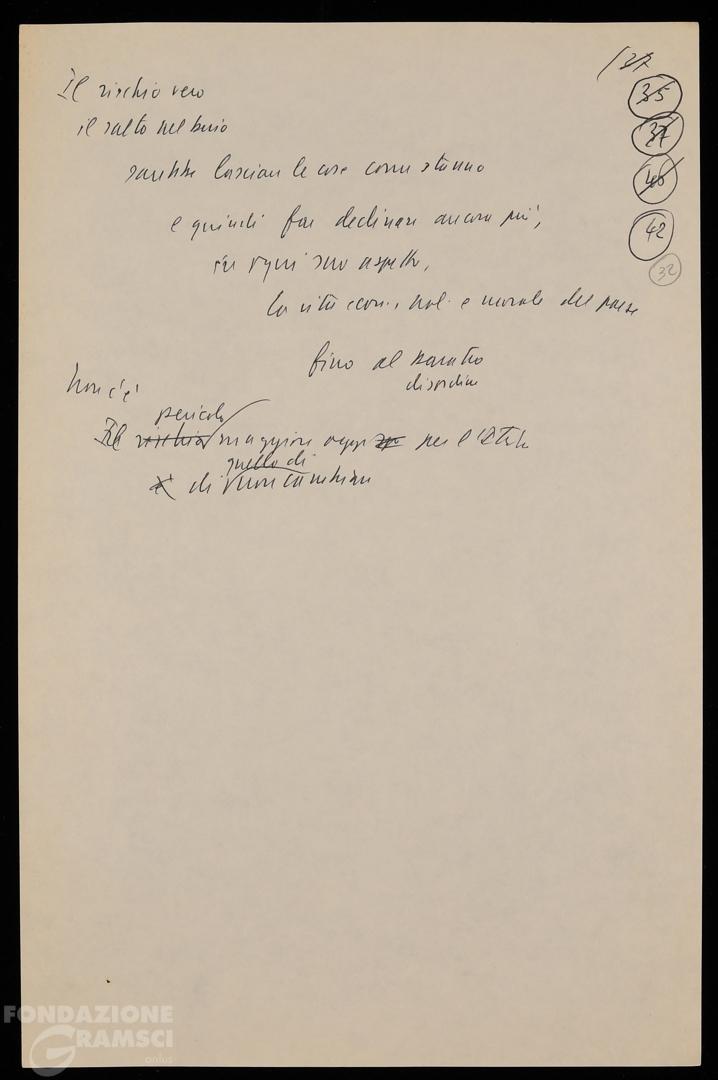 (37
35
37
40
42
32
Il rischio vero
il salto nel buio
sarebbe lasciare le cose come stanno
e quindi far declinare ancora più,
in ogni suo aspetto,
la vita econ., pol. e morale del paese
fino al baratro
disordine
Non c'è
pericolo
Il rischio maggiore oggi per l'Italia
quello di
è di non cambiare
FONDAZIONE
GRAMSCI
onlus